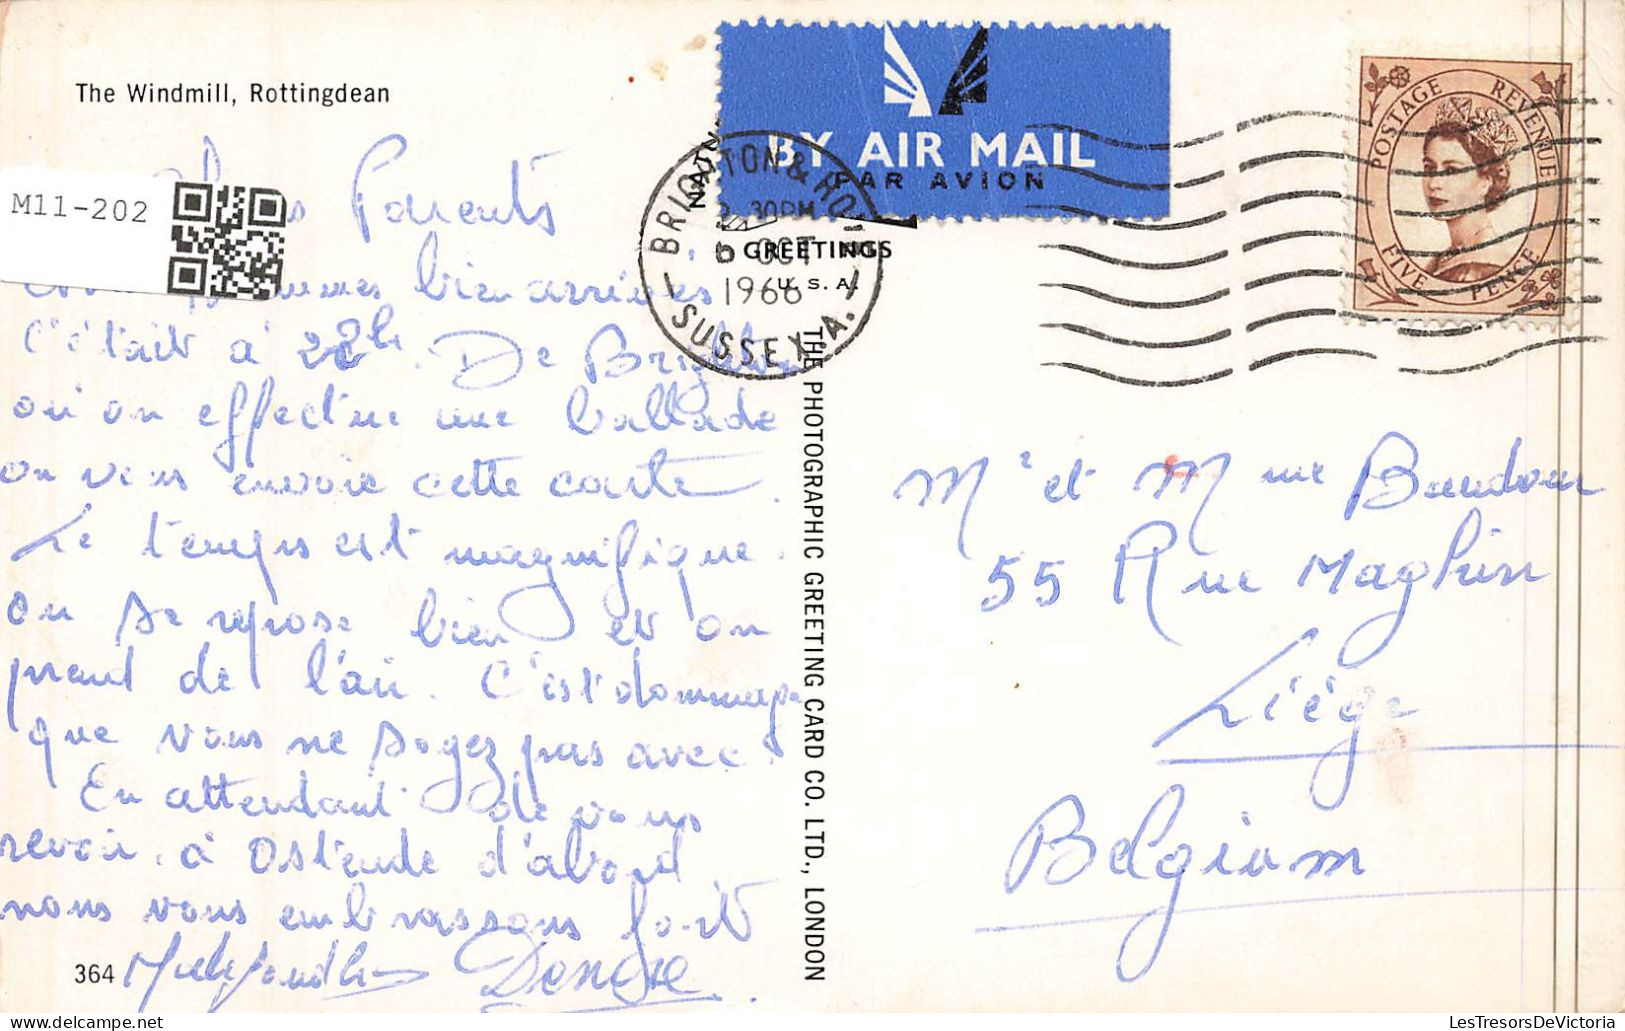 The Windmill, Rottingdean
M11-202
BY AIR MAIL
PAR AVION
GREETINGS
U.S.A.
BRIGHTON & HO
30PM
OCT
1966
SUSSEX A.
POSTAGE REVENUE
FIVE PENCE
Parents
bien arrivées
C'était à 22h. De Brighton
où on effectue une ballade
on vous envoie cette carte.
Le temps est magnifique.
on se repose bien et on
prend de l'air. C'est dommage
que vous ne soyez pas avec.
En attendant de vous
revoir à Ostende d'abord
nous vous embrassons fort
Denise
364
THE PHOTOGRAPHIC GREETING CARD CO. LTD., LONDON
Mr et Mme
55 Rue Maghin
Liége
Belgium
LesTresorsDeVictoria